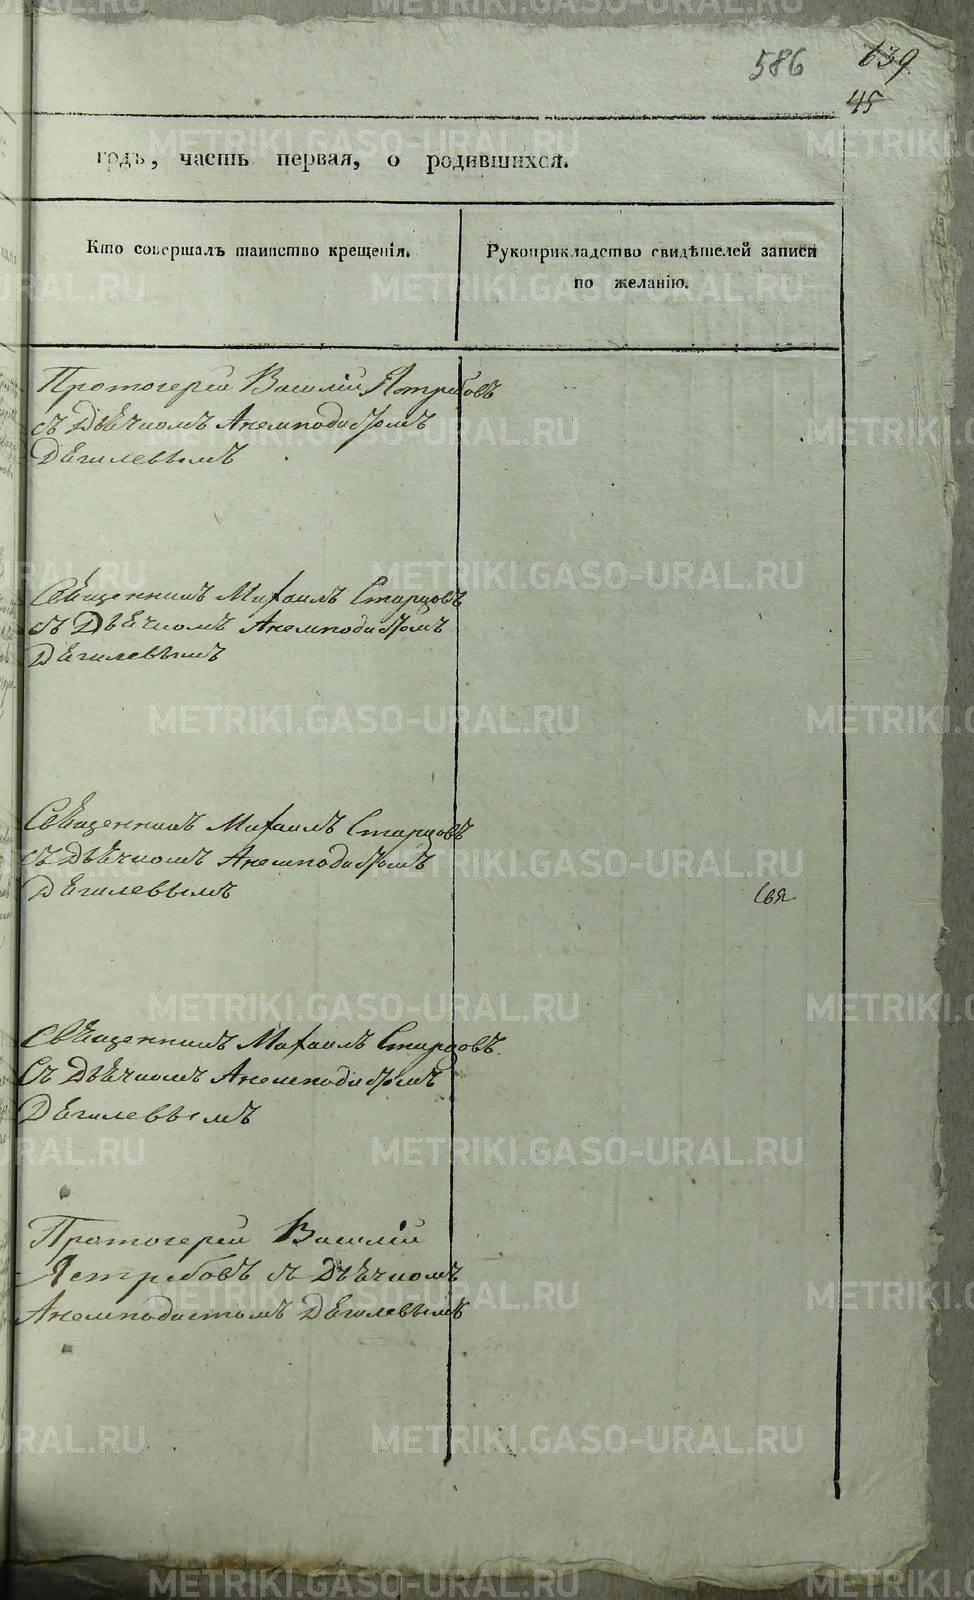 586
639
45
годъ, часть первая, о родившихся.
Кто совершалъ таинство крещенія.
Рукоприкладство свидѣтелей записи
по желанію.
Протоіерей Василій Ястребовъ
съ Дьячкомъ Анемподистомъ
Дѣгилевымъ
Священникъ Михаилъ Старцовъ
съ Дьячкомъ Анемподистомъ
Дѣгилевымъ
Священникъ Михаилъ Старцовъ
съ Дьячкомъ Анемподистомъ
Дѣгилевымъ
Священникъ Михаилъ Старцовъ
Съ Дьячкомъ Анемподистомъ
Дѣгилевымъ
Протоіерей Василій
Ястребовъ съ Дьячкомъ
Анемподистомъ Дѣгилевымъ
METRIKI.GASO-URAL.RU